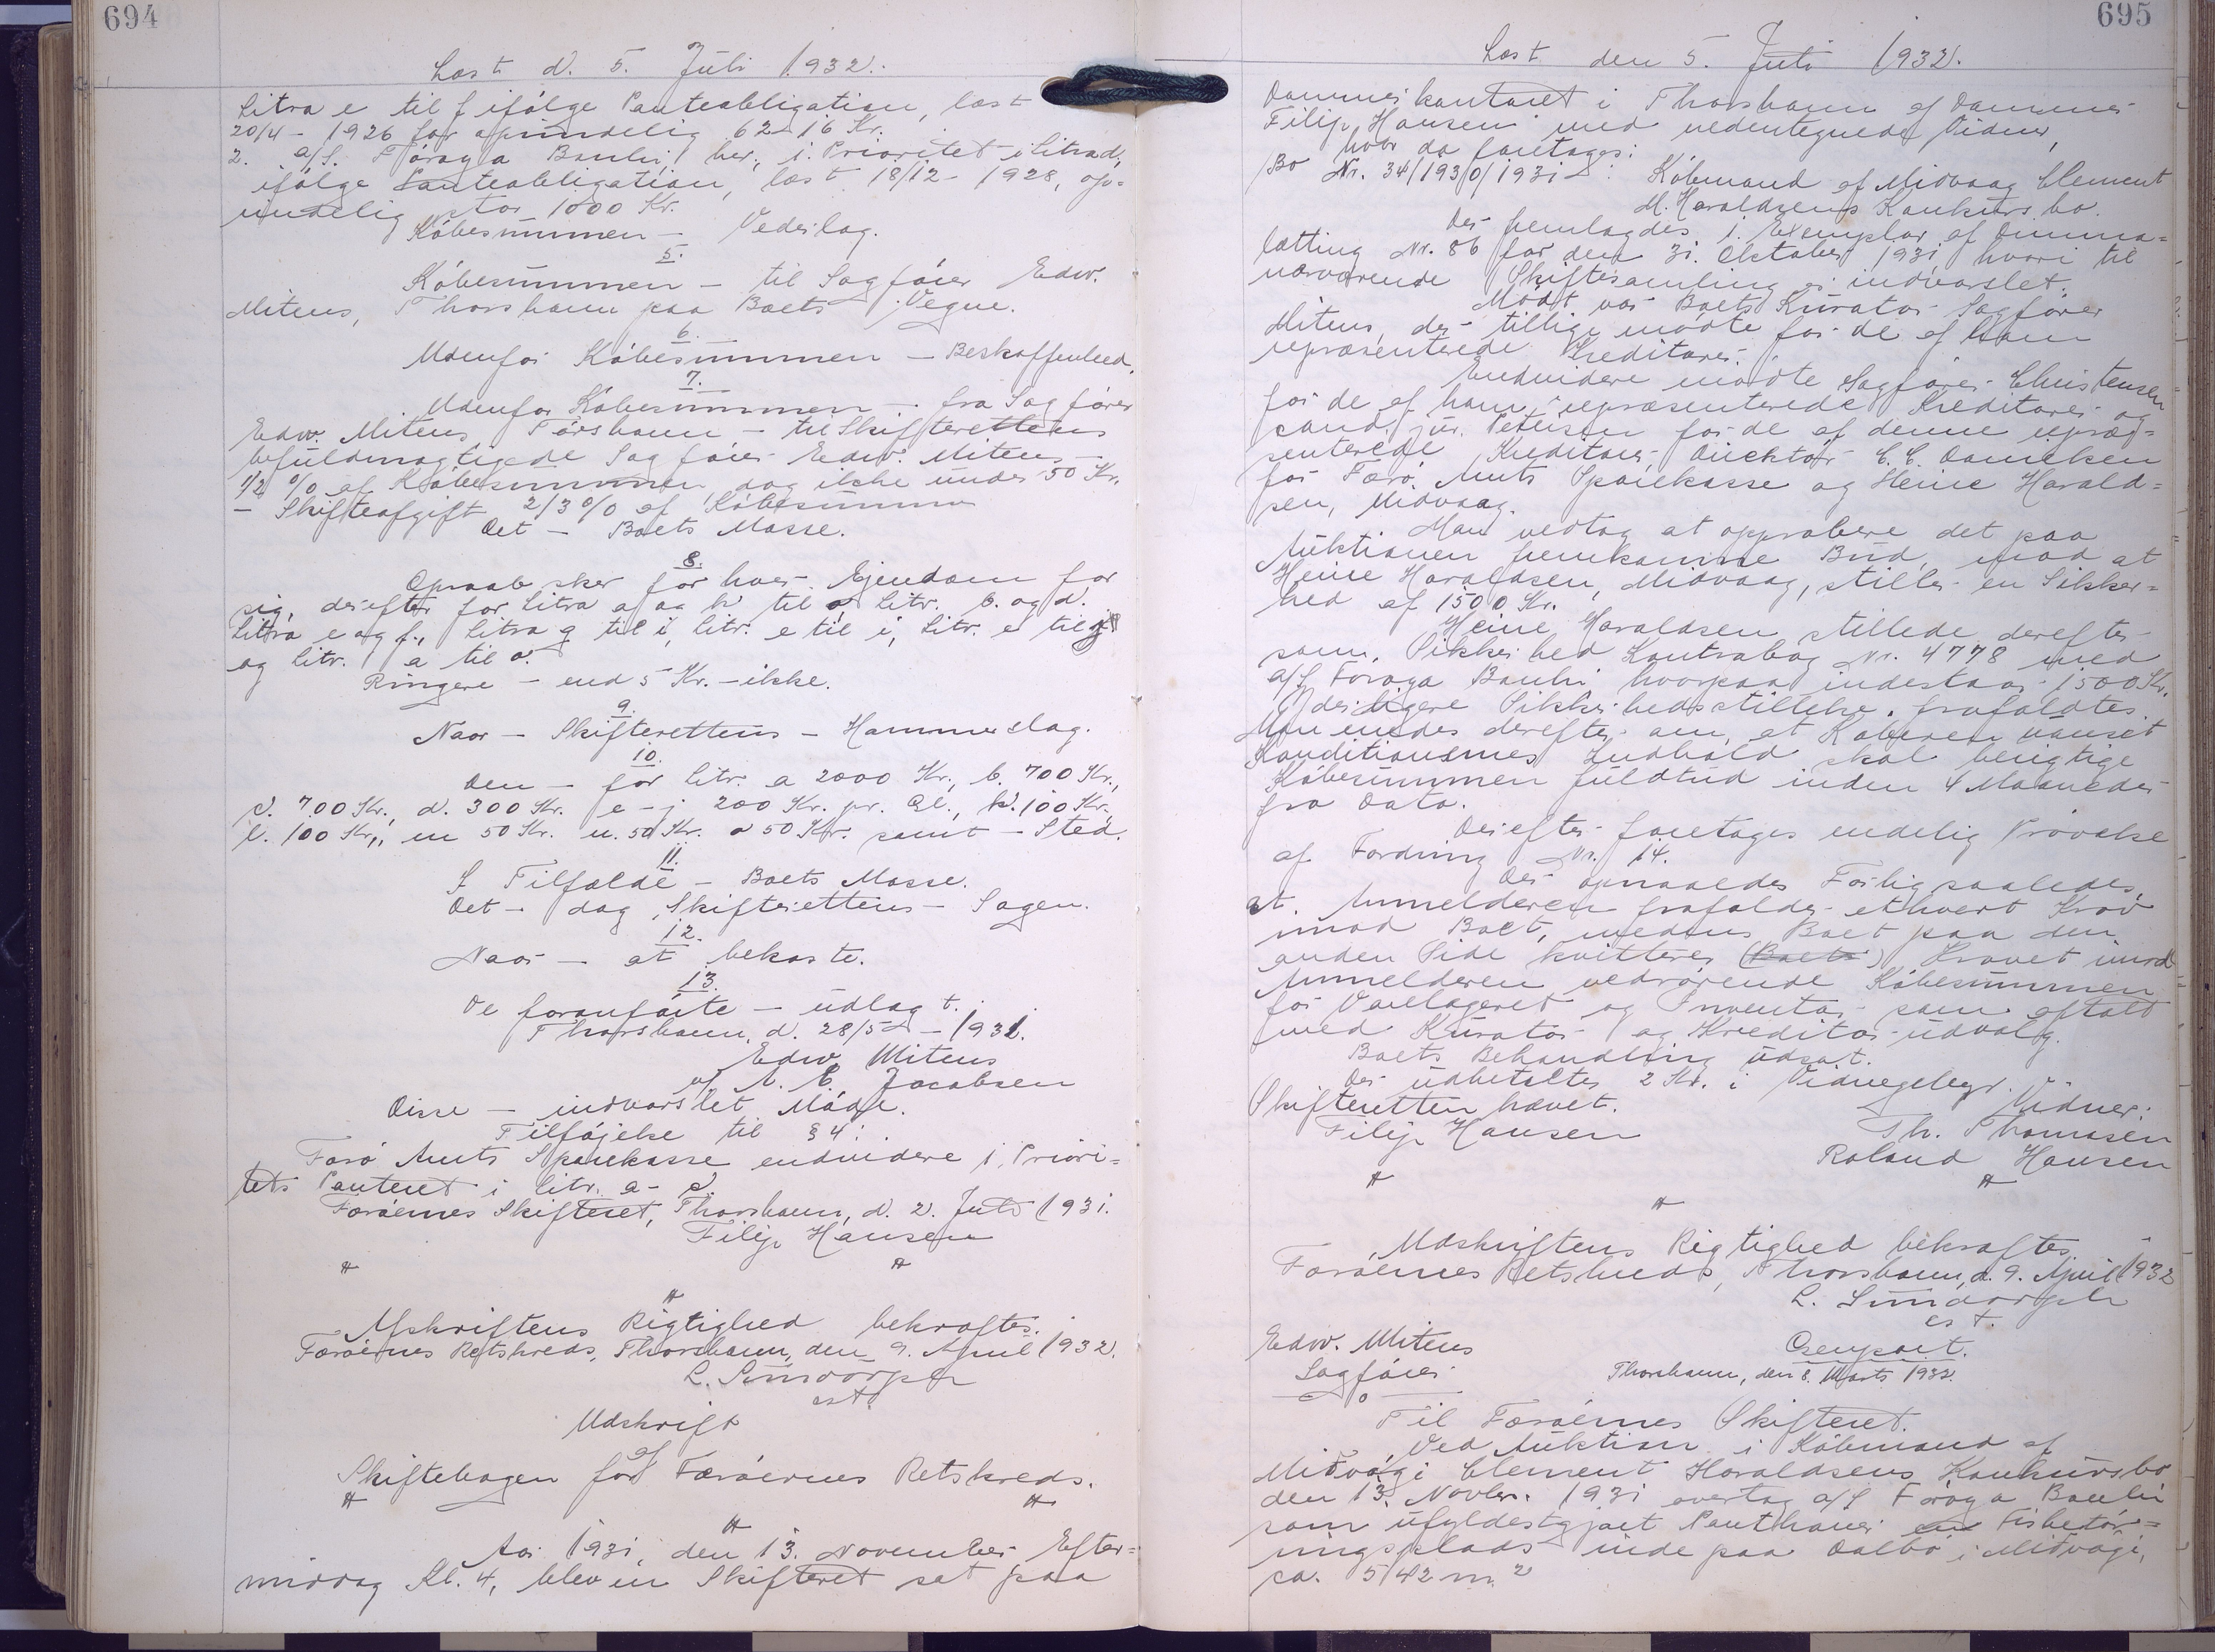 694
Læst d. 5. Juli 1932.
Litra e til f ifølge Panteobligation, læst
20/4 - 1926 for oprindelig 6216 Kr.
2. A/S. Føroya Banki, her, i. Prioritet i litra d,
ifølge Panteobligation, læst 18/12 - 1928, op=
rindelig stor 1000 Kr.
Købesummen - Vederlag.
5.
Købesummen - til Sagfører Edw.
Mitens, Thorshavn paa Boets Vegne.
6.
Udenfor Købesummen - Beskaffenhed.
7.
Udenfor Købesummen - fra Sagfører
Edw. Mitens, Tórshavn - til Skifterettens
befuldmægtigede Sagfører Edw. Mitens -
1/2 % af Købesummen, dog ikke under 50 Kr.
- Skifteafgift 2/3 % af Købesummen
Det - Boets Masse.
8.
Opraab sker for hver Ejendom for
sig, derefter for Litra a og k til o, Litr. b. og d.
Litra e og f., Litra g til i, Litr. e til i, Litr. e til j
og Litr. a til o.
Ringere - end 5 Kr. - ikke.
9.
Naar - Skifterettens - Hammerslag.
10.
Den - for Litr. a 2000 Kr., b. 700 Kr.,
c. 700 Kr., d. 300 Kr. e - j 200 Kr. pr. Gl., k. 100 Kr.,
l. 100 Kr., m 50 Kr. n. 50 Kr. o 50 Kr. samt - Sted.
11.
I Tilfælde - Boets Masse.
Det - dog Skifterettens - Sagen.
12.
Naar - at bekoste.
13.
De foranførte - udlagt.
Thorshavn, d. 28/5 - 1931.
Edw. Mitens
Jacobsen
Disse - indvarslet Møde.
Tilføjelse til § 4:
Færø Amts Sparekasse endvidere i. Priori=
tets Panteret i litr. a - c.
Færøernes Skifteret, Thorshavn, d. 2. Juli 1931.
Filip Hansen
Afskriftens Rigtighed bekræftes.
Færøernes Retskreds, Thorshavn, den 9. April 1932.
L. Simdorph
cst.
Udskrift
af
Skiftebogen for Færøernes Retskreds.
Aar 1931, den 13. November Efter=
middag Kl. 4, blev en Skifteret sat paa
695
Læst den 5. Juli 1932.
Dommerkontoret i Thorshavn af Dommer
Filip Hansen med undertegnede Vidner,
hvor da foretages:
Bo Nr. 34/1930/1931: Købmand af Midvaag Clement
M. Haraldsens Konkursbo.
Der fremlagdes 1. Exemplar af Dimma=
lætting Nr. 86 for den 31. Oktober 1931 hvori til
nærværende Skiftesamling er indvarslet.
Mødt var Boets Kurator Sagfører
Mitens, der tillige mødte for de af ham
repræsenterede Kreditorer.
Endvidere mødte Sagfører Christensen
for de af ham repræsenterede Kreditorer og
cand. jur. Petersen for de af denne repræ=
senterede Kreditorer, Direktør C. C. Danielsen
for Færø Amts Sparekasse og Heine Harald=
sen, Midvaag.
Man vedtog at approbere det paa
Auktionen fremkomne Bud, mod at
Heine Haraldsen, Midvaag, stiller en Sikker=
hed af 1500 Kr.
Heine Haraldsen stillede derefter
som Sikkerhed Kontrabog Nr. 4778 med
A/S Føroya Banki hvorpaa indestaar 1500 Kr.
Yderligere Sikkerhedsstillelse frafaldtes.
Man enedes derefter om, at Køberen uanset
Konditionernes Indhold skal berigtige
Købesummen fuldtud inden 4 Maaneder
fra Dato.
Derefter foretages endelig Prøvelse
af Fordring Nr. 14.
Der opnaaedes Forlig saaledes,
at Anmelderen frafalder ethvert Krav
imod Boet, medens Boet paa den
anden Side kvitterer (Boets) Kravet imod
Anmelderen vedrørende Købesummen
for Varelageret og Inventar som aftalt
med Kurator og Kreditorudvalg.
Boets Behandling udsat.
Der udbetaltes 2 Kr. i Vidnegebyr.
Skifteretten hævet.
Vidner:
Filip Hansen
Th. Thomasen
Roland Hansen
Udskriftens Rigtighed bekræftes.
Færøernes Retskreds, Thorshavn, d. 9. April 1932
L. Simdorph
cst.
Edw. Mitens
Sagfører
Genpart.
Thorshavn, den 8. Marts 1932.
Til Færøernes Skifteret.
Ved Auktion i Købmand af
Miðvági Clement Haraldsens Konkursbo
den 13. Novbr. 1931 overtog A/S Føroya Banki
som ufyldestgjort Panthaver en Fisketør=
ringsplads inde paa Dalbø i Miðvági,
ca. 542 m²